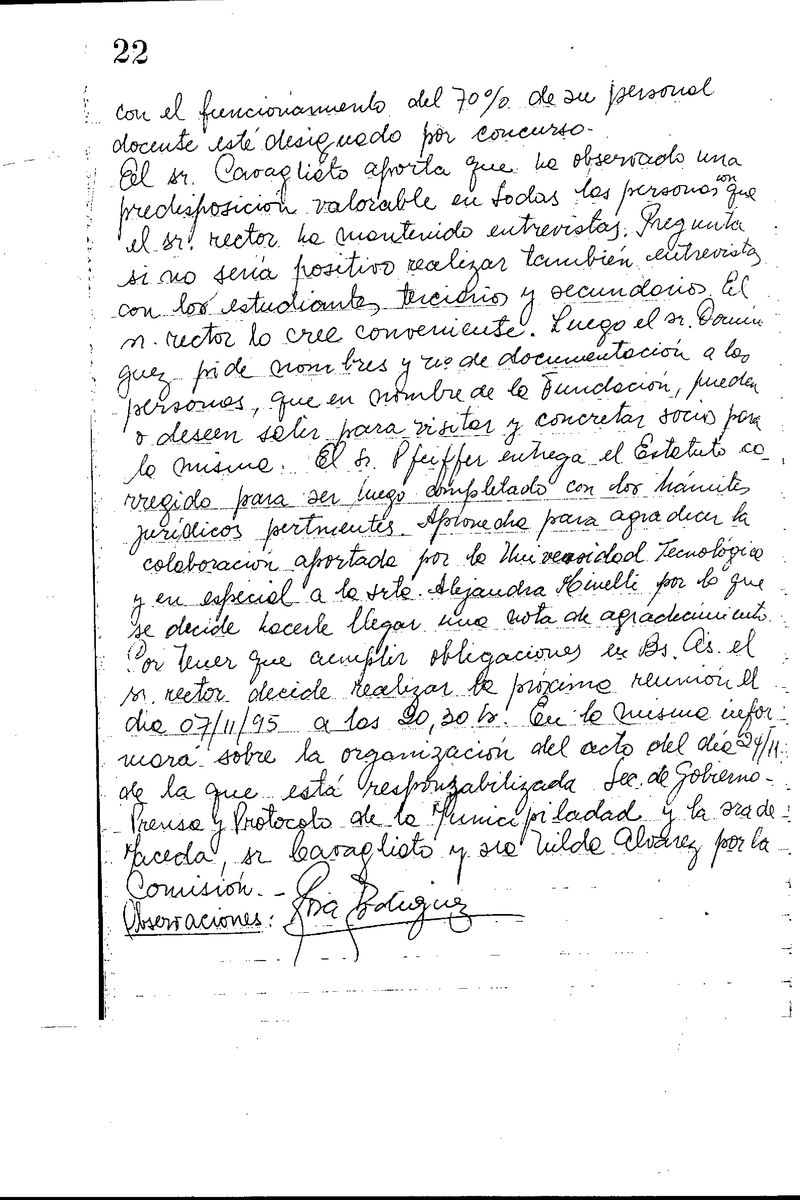 22
con el funcionamiento del 70% de su personal
docente esté designado por concurso.
El sr. Cavagliato aporta que ha observado una
predisposición valorable en todas las personas con que
el sr. rector ha mantenido entrevistas. Pregunta
si no sería positivo realizar también entrevistas
con los estudiantes terciarios y secundarios. El
sr. rector lo cree conveniente. Luego el sr. Domin
guez pide nombres y nº de documentación a las
personas, que en nombre de la Fundación, puedan
o deseen salir para visitar y concretar socios para
la misma. El sr. Pfeiffer entrega el Estatuto co_
rregido para ser luego completado con los trámites
jurídicos pertinentes. Aprovecha para agradecer la
colaboración aportada por la Universidad Tecnológica
y en especial a la srta. Alejandra Minelli por lo que
se decide hacerle llegar una nota de agradecimiento.
Por tener que cumplir obligaciones en Bs. As. el
sr. rector decide realizar la próxima reunión el
día 07/11/95 a las 20,30 h. En la misma infor
mará sobre la organización del acto del día 24/11
de la que está responzabilizada Sec. de Gobierno-
Prensa y Protocolo de la Municipiladad y la sra de
Maceda, sr Cavagliato y sra Nilda Alvarez por la
Comisión.-
Observaciones: Rodriguez